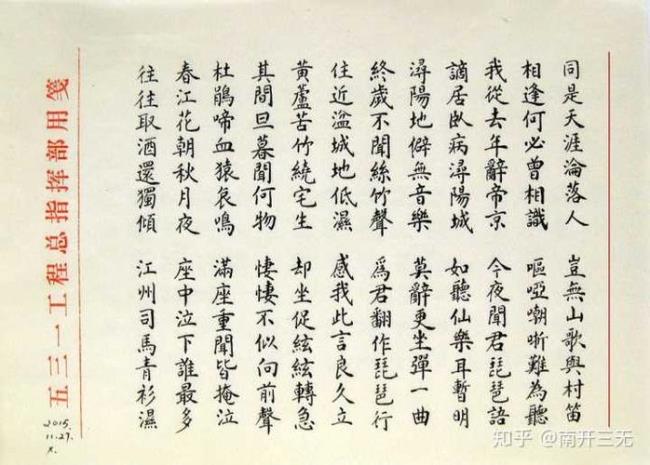 同是天涯淪落人
相逢何必曾相識
我從去年辭帝京
謫居臥病潯陽城
潯陽地僻無音樂
終歲不聞絲竹聲
住近湓城地低濕
黃蘆苦竹繞宅生
其間旦暮聞何物
杜鵑啼血猿哀鳴
春江花朝秋月夜
往往取酒還獨傾
豈無山歌與村笛
嘔啞嘲哳難為聽
今夜聞君琵琶語
如聽仙樂耳暫明
莫辭更坐彈一曲
爲君翻作琵琶行
感我此言良久立
却坐促絃絃轉急
悽悽不似向前聲
滿座重聞皆掩泣
座中泣下誰最多
江州司馬青衫濕
五三一工程总指挥部用箋
2015.
11.27.
知乎 @南开三无